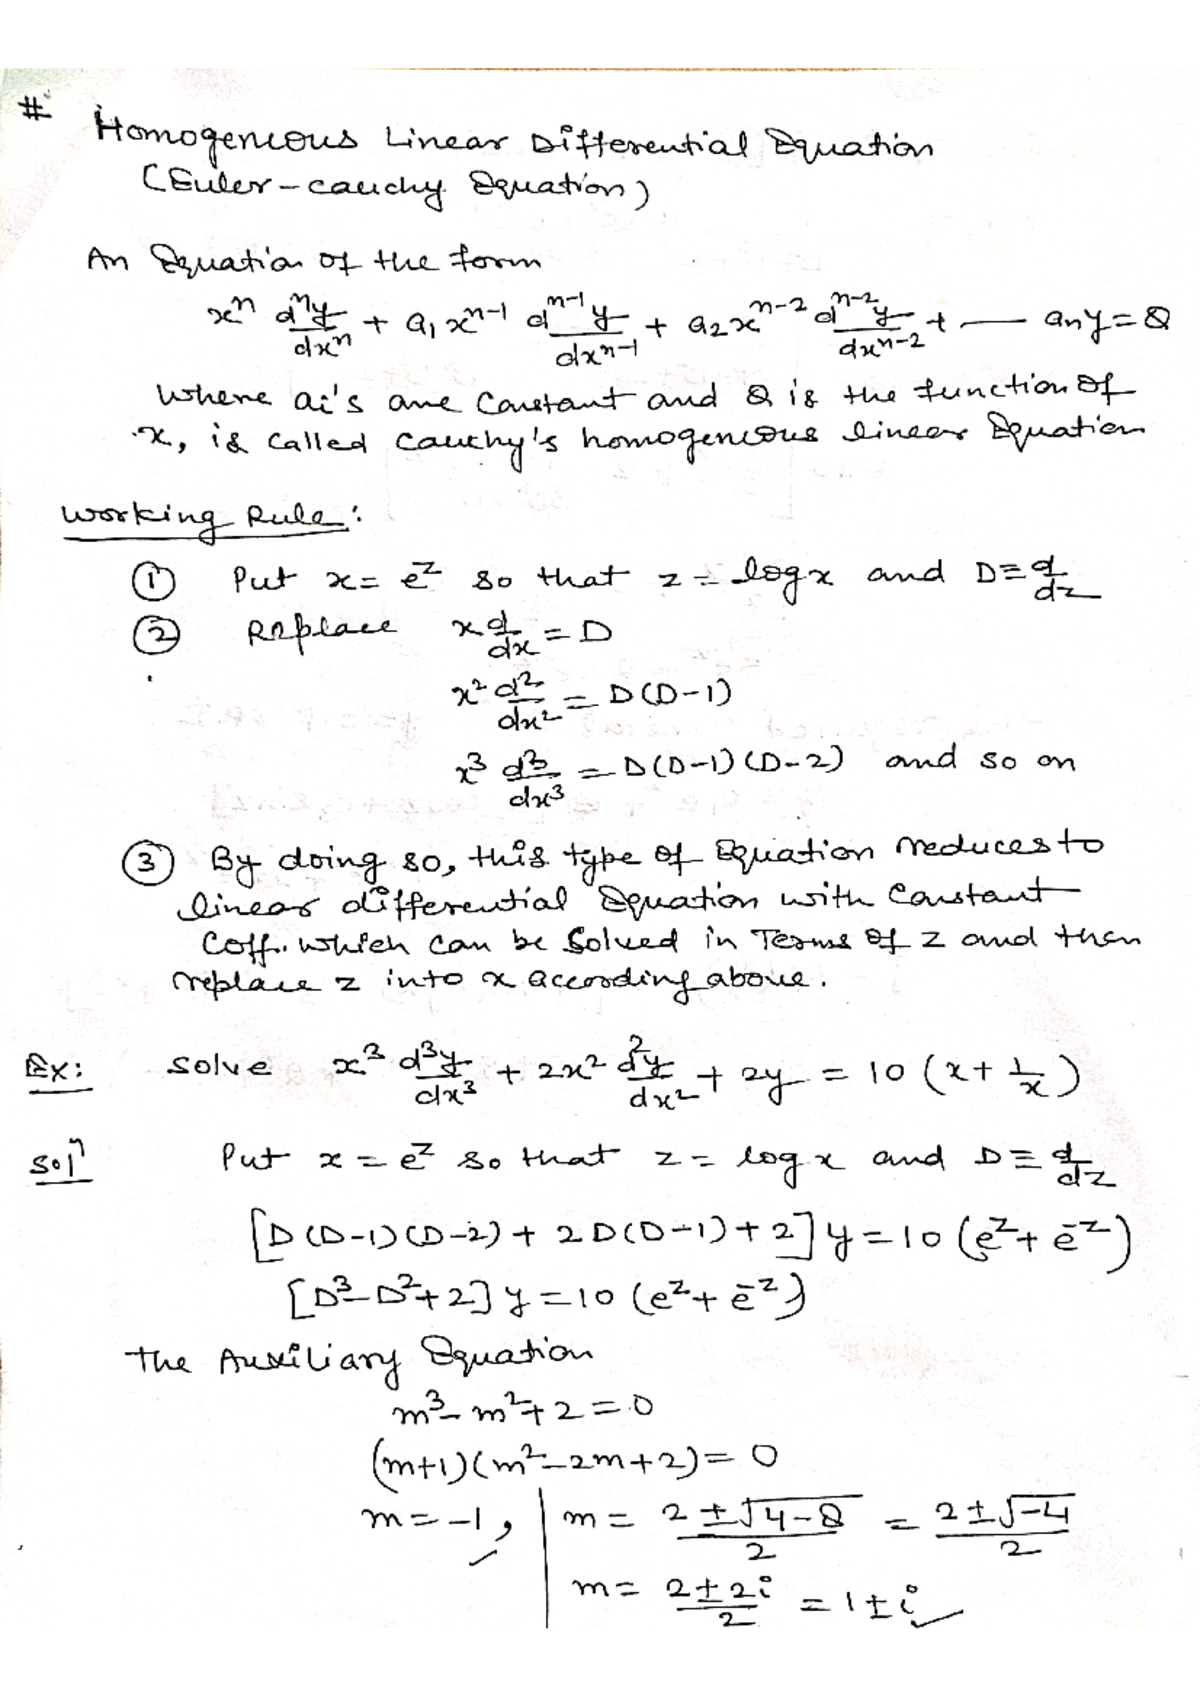 # Homogeneous Linear Differential Equation
(Euler-cauchy Equation)
An Equation of the form
xⁿ dⁿy/dxⁿ + a₁xⁿ⁻¹ dⁿ⁻¹y/dxⁿ⁻¹ + a₂xⁿ⁻² dⁿ⁻²y/dxⁿ⁻² + — aₙy = Q
where ai's are constant and Q is the function of
x, is called cauchy's homogeneous linear Equation
Working Rule:
① Put x = e^z so that z = log x and D ≡ d/dz
② Replace x d/dx = D
x² d²/dx² = D(D-1)
x³ d³/dx³ = D(D-1)(D-2) and so on
③ By doing so, this type of Equation reduces to
linear differential Equation with constant
coff. which can be solved in Terms of z and then
replace z into x according above.
Ex: solve x³ d³y/dx³ + 2x² d²y/dx² + 2y = 10(x + 1/x)
Solⁿ Put x = e^z so that z = log x and D ≡ d/dz
[D(D-1)(D-2) + 2D(D-1) + 2] y = 10(e^z + e^-z)
[D³ - D² + 2] y = 10(e^z + e^-z)
The Auxiliary Equation
m³ - m² + 2 = 0
(m+1)(m² - 2m + 2) = 0
m = -1, | m = (2 ± √(4-8))/2 = (2 ± √-4)/2
m = (2 ± 2i)/2 = 1 ± i